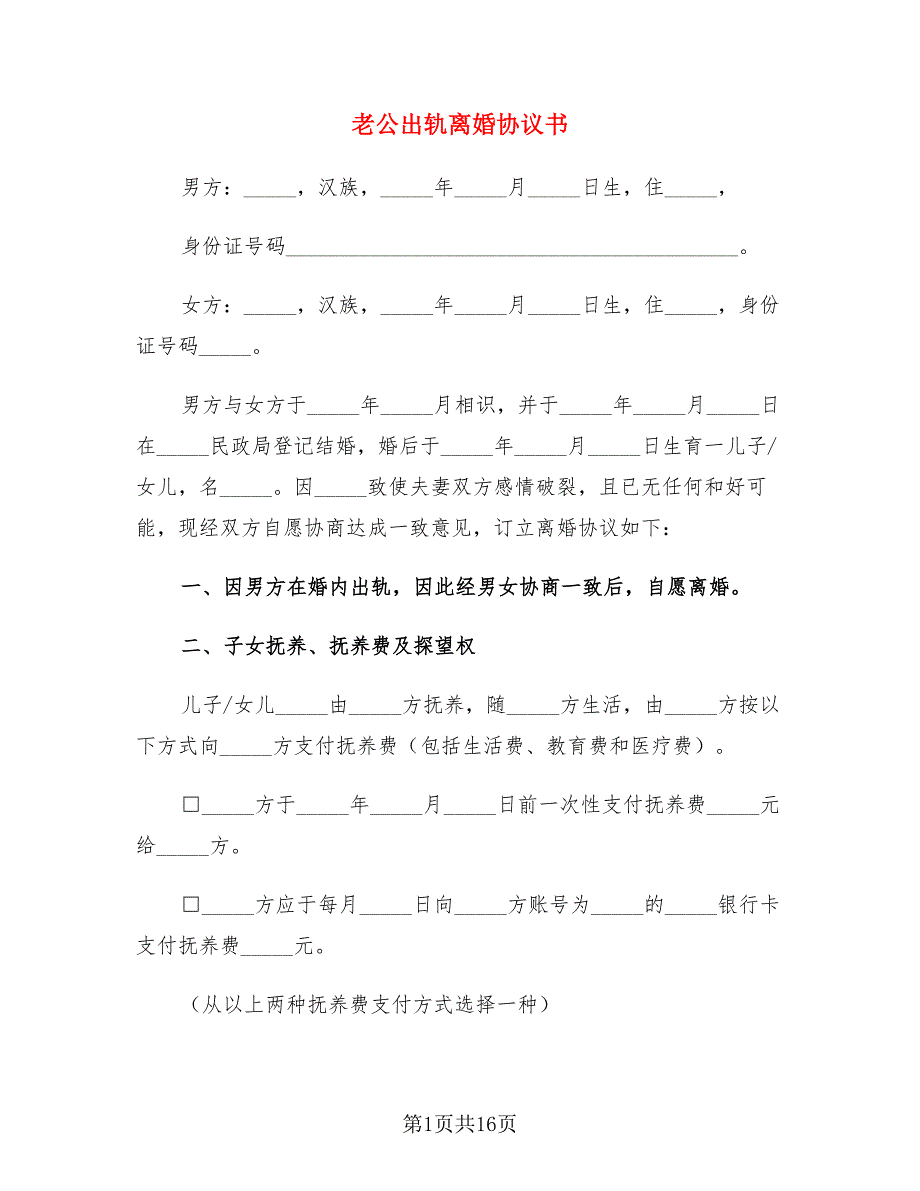 老公出轨离婚协议书
男方：_____，汉族，_____年_____月_____日生，住_____，
身份证号码___________________________________________。
女方：_____，汉族，_____年_____月_____日生，住_____，身份
证号码_____。
男方与女方于_____年_____月相识，并于_____年_____月_____日
在_____民政局登记结婚，婚后于_____年_____月_____日生育一儿子/
女儿，名_____。因_____致使夫妻双方感情破裂，且已无任何和好可
能，现经双方自愿协商达成一致意见，订立离婚协议如下：
一、因男方在婚内出轨，因此经男女协商一致后，自愿离婚。
二、子女抚养、抚养费及探望权
儿子/女儿_____由_____方抚养，随_____方生活，由_____方按以
下方式向_____方支付抚养费（包括生活费、教育费和医疗费）。
□_____方于_____年_____月_____日前一次性支付抚养费_____元
给_____方。
□_____方应于每月_____日向_____方账号为_____的_____银行卡
支付抚养费_____元。
（从以上两种抚养费支付方式选择一种）
第1页共16页